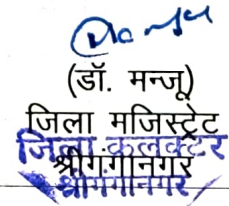 (डॉ. मन्जू)
जिला मजिस्ट्रेट
जिला कलक्टर
श्रीगंगानगर
श्रीगंगानगर